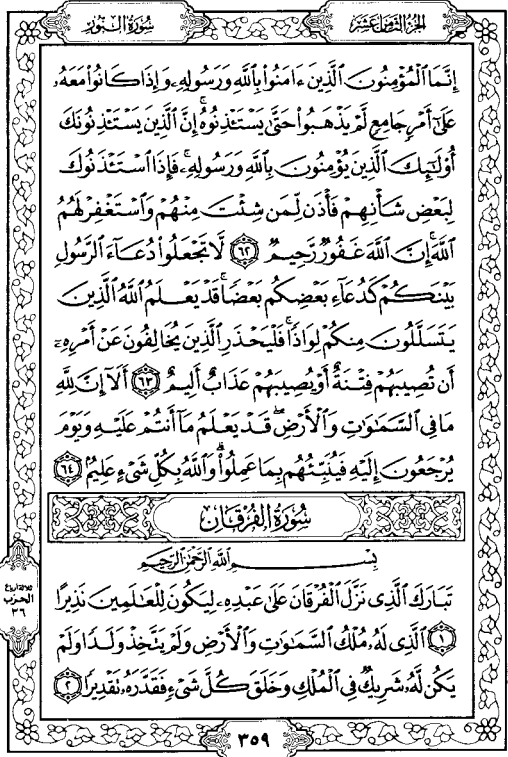 سُورَةُ النُّورِ
الجُزءُ الثَّامِنَ عَشَرَ
إِنَّمَا ٱلْمُؤْمِنُونَ ٱلَّذِينَ ءَامَنُوا۟ بِٱللَّهِ وَرَسُولِهِۦ وَإِذَا كَانُوا۟ مَعَهُۥ
عَلَىٰٓ أَمْرٍ جَامِعٍ لَّمْ يَذْهَبُوا۟ حَتَّىٰ يَسْتَـْٔذِنُوهُ ۚ إِنَّ ٱلَّذِينَ يَسْتَـْٔذِنُونَكَ
أُو۟لَـٰٓئِكَ ٱلَّذِينَ يُؤْمِنُونَ بِٱللَّهِ وَرَسُولِهِۦ ۚ فَإِذَا ٱسْتَـْٔذَنُوكَ
لِبَعْضِ شَأْنِهِمْ فَأْذَن لِّمَن شِئْتَ مِنْهُمْ وَٱسْتَغْفِرْ لَهُمُ
ٱللَّهَ ۚ إِنَّ ٱللَّهَ غَفُورٌ رَّحِيمٌ ٦٢ لَّا تَجْعَلُوا۟ دُعَآءَ ٱلرَّسُولِ
بَيْنَكُمْ كَدُعَآءِ بَعْضِكُم بَعْضًا ۚ قَدْ يَعْلَمُ ٱللَّهُ ٱلَّذِينَ
يَتَسَلَّلُونَ مِنكُمْ لِوَاذًا ۚ فَلْيَحْذَرِ ٱلَّذِينَ يُخَالِفُونَ عَنْ أَمْرِهِۦٓ
أَن تُصِيبَهُمْ فِتْنَةٌ أَوْ يُصِيبَهُمْ عَذَابٌ أَلِيمٌ ٦٣ أَلَآ إِنَّ لِلَّهِ
مَا فِى ٱلسَّمَـٰوَٰتِ وَٱلْأَرْضِ ۖ قَدْ يَعْلَمُ مَآ أَنتُمْ عَلَيْهِ وَيَوْمَ
يُرْجَعُونَ إِلَيْهِ فَيُنَبِّئُهُم بِمَا عَمِلُوا۟ ۗ وَٱللَّهُ بِكُلِّ شَىْءٍ عَلِيمٌۢ ٦٤
سُورَةُ الفُرْقَانِ
بِسْمِ ٱللَّهِ ٱلرَّحْمَـٰنِ ٱلرَّحِيمِ
تَبَارَكَ ٱلَّذِى نَزَّلَ ٱلْفُرْقَانَ عَلَىٰ عَبْدِهِۦ لِيَكُونَ لِلْعَـٰلَمِينَ نَذِيرًا
١ ٱلَّذِى لَهُۥ مُلْكُ ٱلسَّمَـٰوَٰتِ وَٱلْأَرْضِ وَلَمْ يَتَّخِذْ وَلَدًا وَلَمْ
يَكُن لَّهُۥ شَرِيكٌ فِى ٱلْمُلْكِ وَخَلَقَ كُلَّ شَىْءٍ فَقَدَّرَهُۥ تَقْدِيرًا ٢
ثلاثة أرباع
الحزب
٣٦
٣٥٩